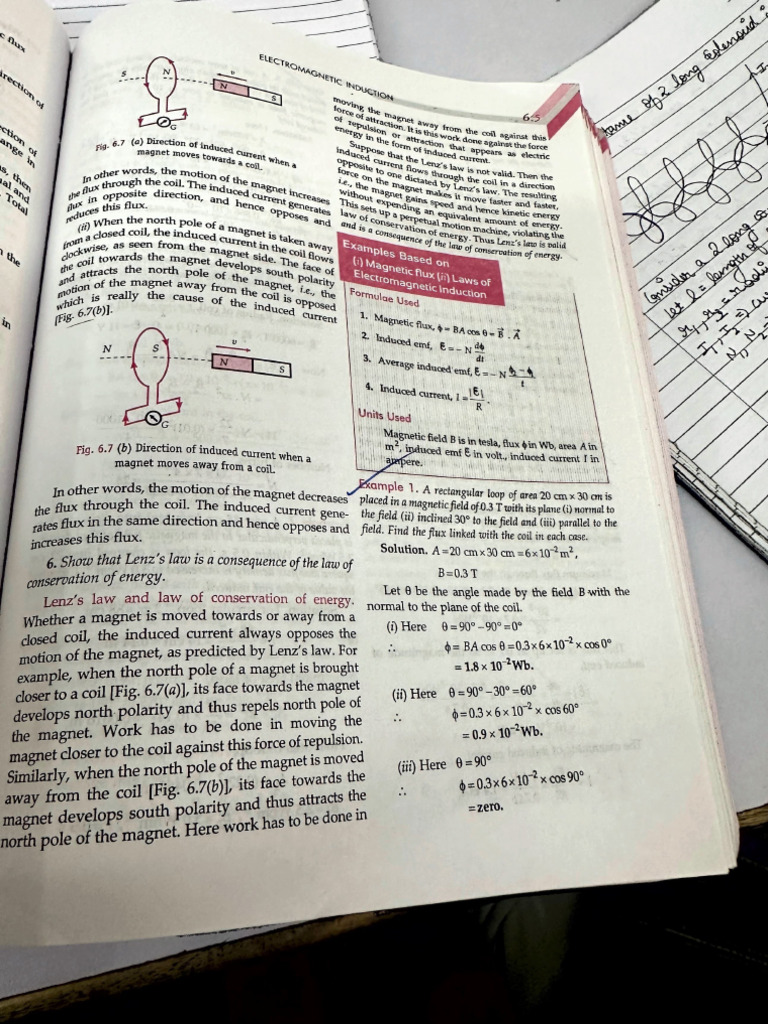 ELECTROMAGNETIC INDUCTION
6.5
S
N
v
N
S
G
Fig. 6.7 (a) Direction of induced current when a
magnet moves towards a coil.
In other words, the motion of the magnet increases
the flux through the coil. The induced current generates
flux in opposite direction, and hence opposes and
reduces this flux.
(ii) When the north pole of a magnet is taken away
from a closed coil, the induced current in the coil flows
clockwise, as seen from the magnet side. The face of
the coil towards the magnet develops south polarity
and attracts the north pole of the magnet, i.e., the
motion of the magnet away from the coil is opposed
which is really the cause of the induced current
[Fig. 6.7(b)].
N
S
v
N
S
G
Fig. 6.7 (b) Direction of induced current when a
magnet moves away from a coil.
In other words, the motion of the magnet decreases
the flux through the coil. The induced current gene-
rates flux in the same direction and hence opposes and
increases this flux.
6. Show that Lenz's law is a consequence of the law of
conservation of energy.
Lenz's law and law of conservation of energy.
Whether a magnet is moved towards or away from a
closed coil, the induced current always opposes the
motion of the magnet, as predicted by Lenz's law. For
example, when the north pole of a magnet is brought
closer to a coil [Fig. 6.7(a)], its face towards the magnet
develops north polarity and thus repels north pole of
the magnet. Work has to be done in moving the
magnet closer to the coil against this force of repulsion.
Similarly, when the north pole of the magnet is moved
away from the coil [Fig. 6.7(b)], its face towards the
magnet develops south polarity and thus attracts the
north pole of the magnet. Here work has to be done in
moving the magnet away from the coil against this
force of attraction. It is this work done against the force
of repulsion or attraction that appears as electric
energy in the form of induced current.
Suppose that the Lenz's law is not valid. Then the
induced current flows through the coil in a direction
opposite to one dictated by Lenz's law. The resulting
force on the magnet makes it move faster and faster,
i.e., the magnet gains speed and hence kinetic energy
without expending an equivalent amount of energy.
This sets up a perpetual motion machine, violating the
law of conservation of energy. Thus Lenz's law is valid
and is a consequence of the law of conservation of energy.
Examples Based on
(i) Magnetic flux (ii) Laws of
Electromagnetic Induction
Formulae Used
1. Magnetic flux, ϕ = BA cos θ = B⃗ . A⃗
2. Induced emf, ℰ = – N dϕ/dt
3. Average induced emf, ℰ = – N ϕ₂ – ϕ₁ / t
4. Induced current, I = |ℰ|/R .
Units Used
Magnetic field B is in tesla, flux ϕ in Wb, area A in
m², induced emf ℰ in volt., induced current I in
ampere.
Example 1. A rectangular loop of area 20 cm × 30 cm is
placed in a magnetic field of 0.3 T with its plane (i) normal to
the field (ii) inclined 30° to the field and (iii) parallel to the
field. Find the flux linked with the coil in each case.
Solution. A = 20 cm × 30 cm = 6 × 10⁻² m²,
B = 0.3 T
Let θ be the angle made by the field B with the
normal to the plane of the coil.
(i) Here θ = 90° – 90° = 0°
∴ ϕ = BA cos θ = 0.3 × 6 × 10⁻² × cos 0°
= 1.8 × 10⁻² Wb.
(ii) Here θ = 90° – 30° = 60°
∴ ϕ = 0.3 × 6 × 10⁻² × cos 60°
= 0.9 × 10⁻² Wb.
(iii) Here θ = 90°
∴ ϕ = 0.3 × 6 × 10⁻² × cos 90°
= zero.
of 2 long Solenoid
Consider a 2 long
let l = length of